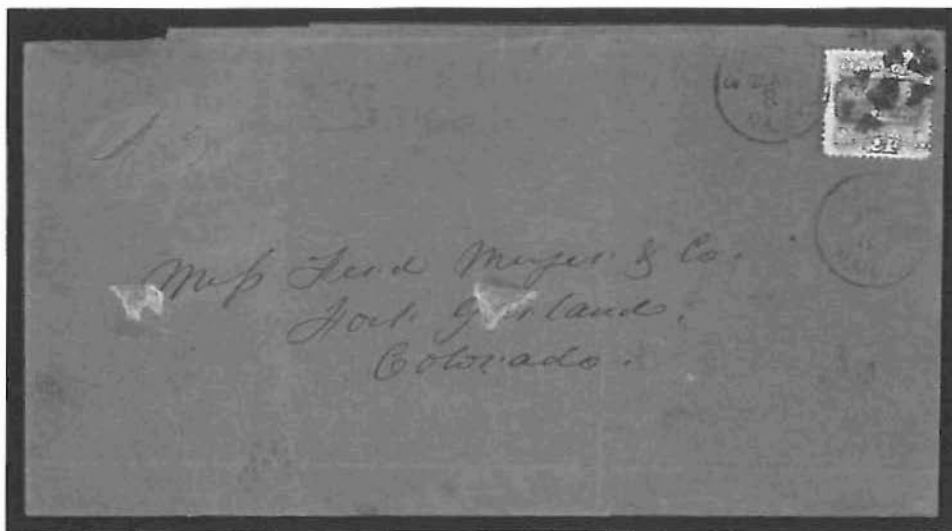 Mess Ferd Meyer & Co.
Fort Garland,
Colorado.